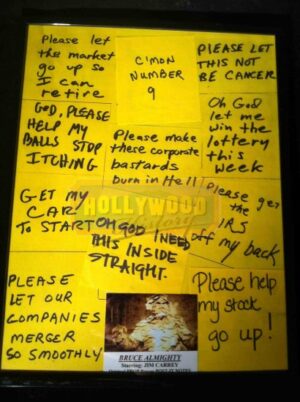 Please let
the market
go up so
I can
retire
C'MON
NUMBER
9
PLEASE LET
THIS NOT
BE CANCER
GOD, PLEASE
HELP MY
BALLS STOP
ITCHING
Please make
these corporate
bastards
burn in Hell
Oh God
let me
win the
lottery
this
week
GET MY
CAR
TO START
OH GOD I NEED
THIS INSIDE
STRAIGHT.
Please get
the
IRS
off my back
HOLLYWOOD
PLEASE
LET OUR
COMPANIES
MERGER
GO SMOOTHLY
BRUCE ALMIGHTY
Starring: JIM CARREY
Please help
my stock
go up!